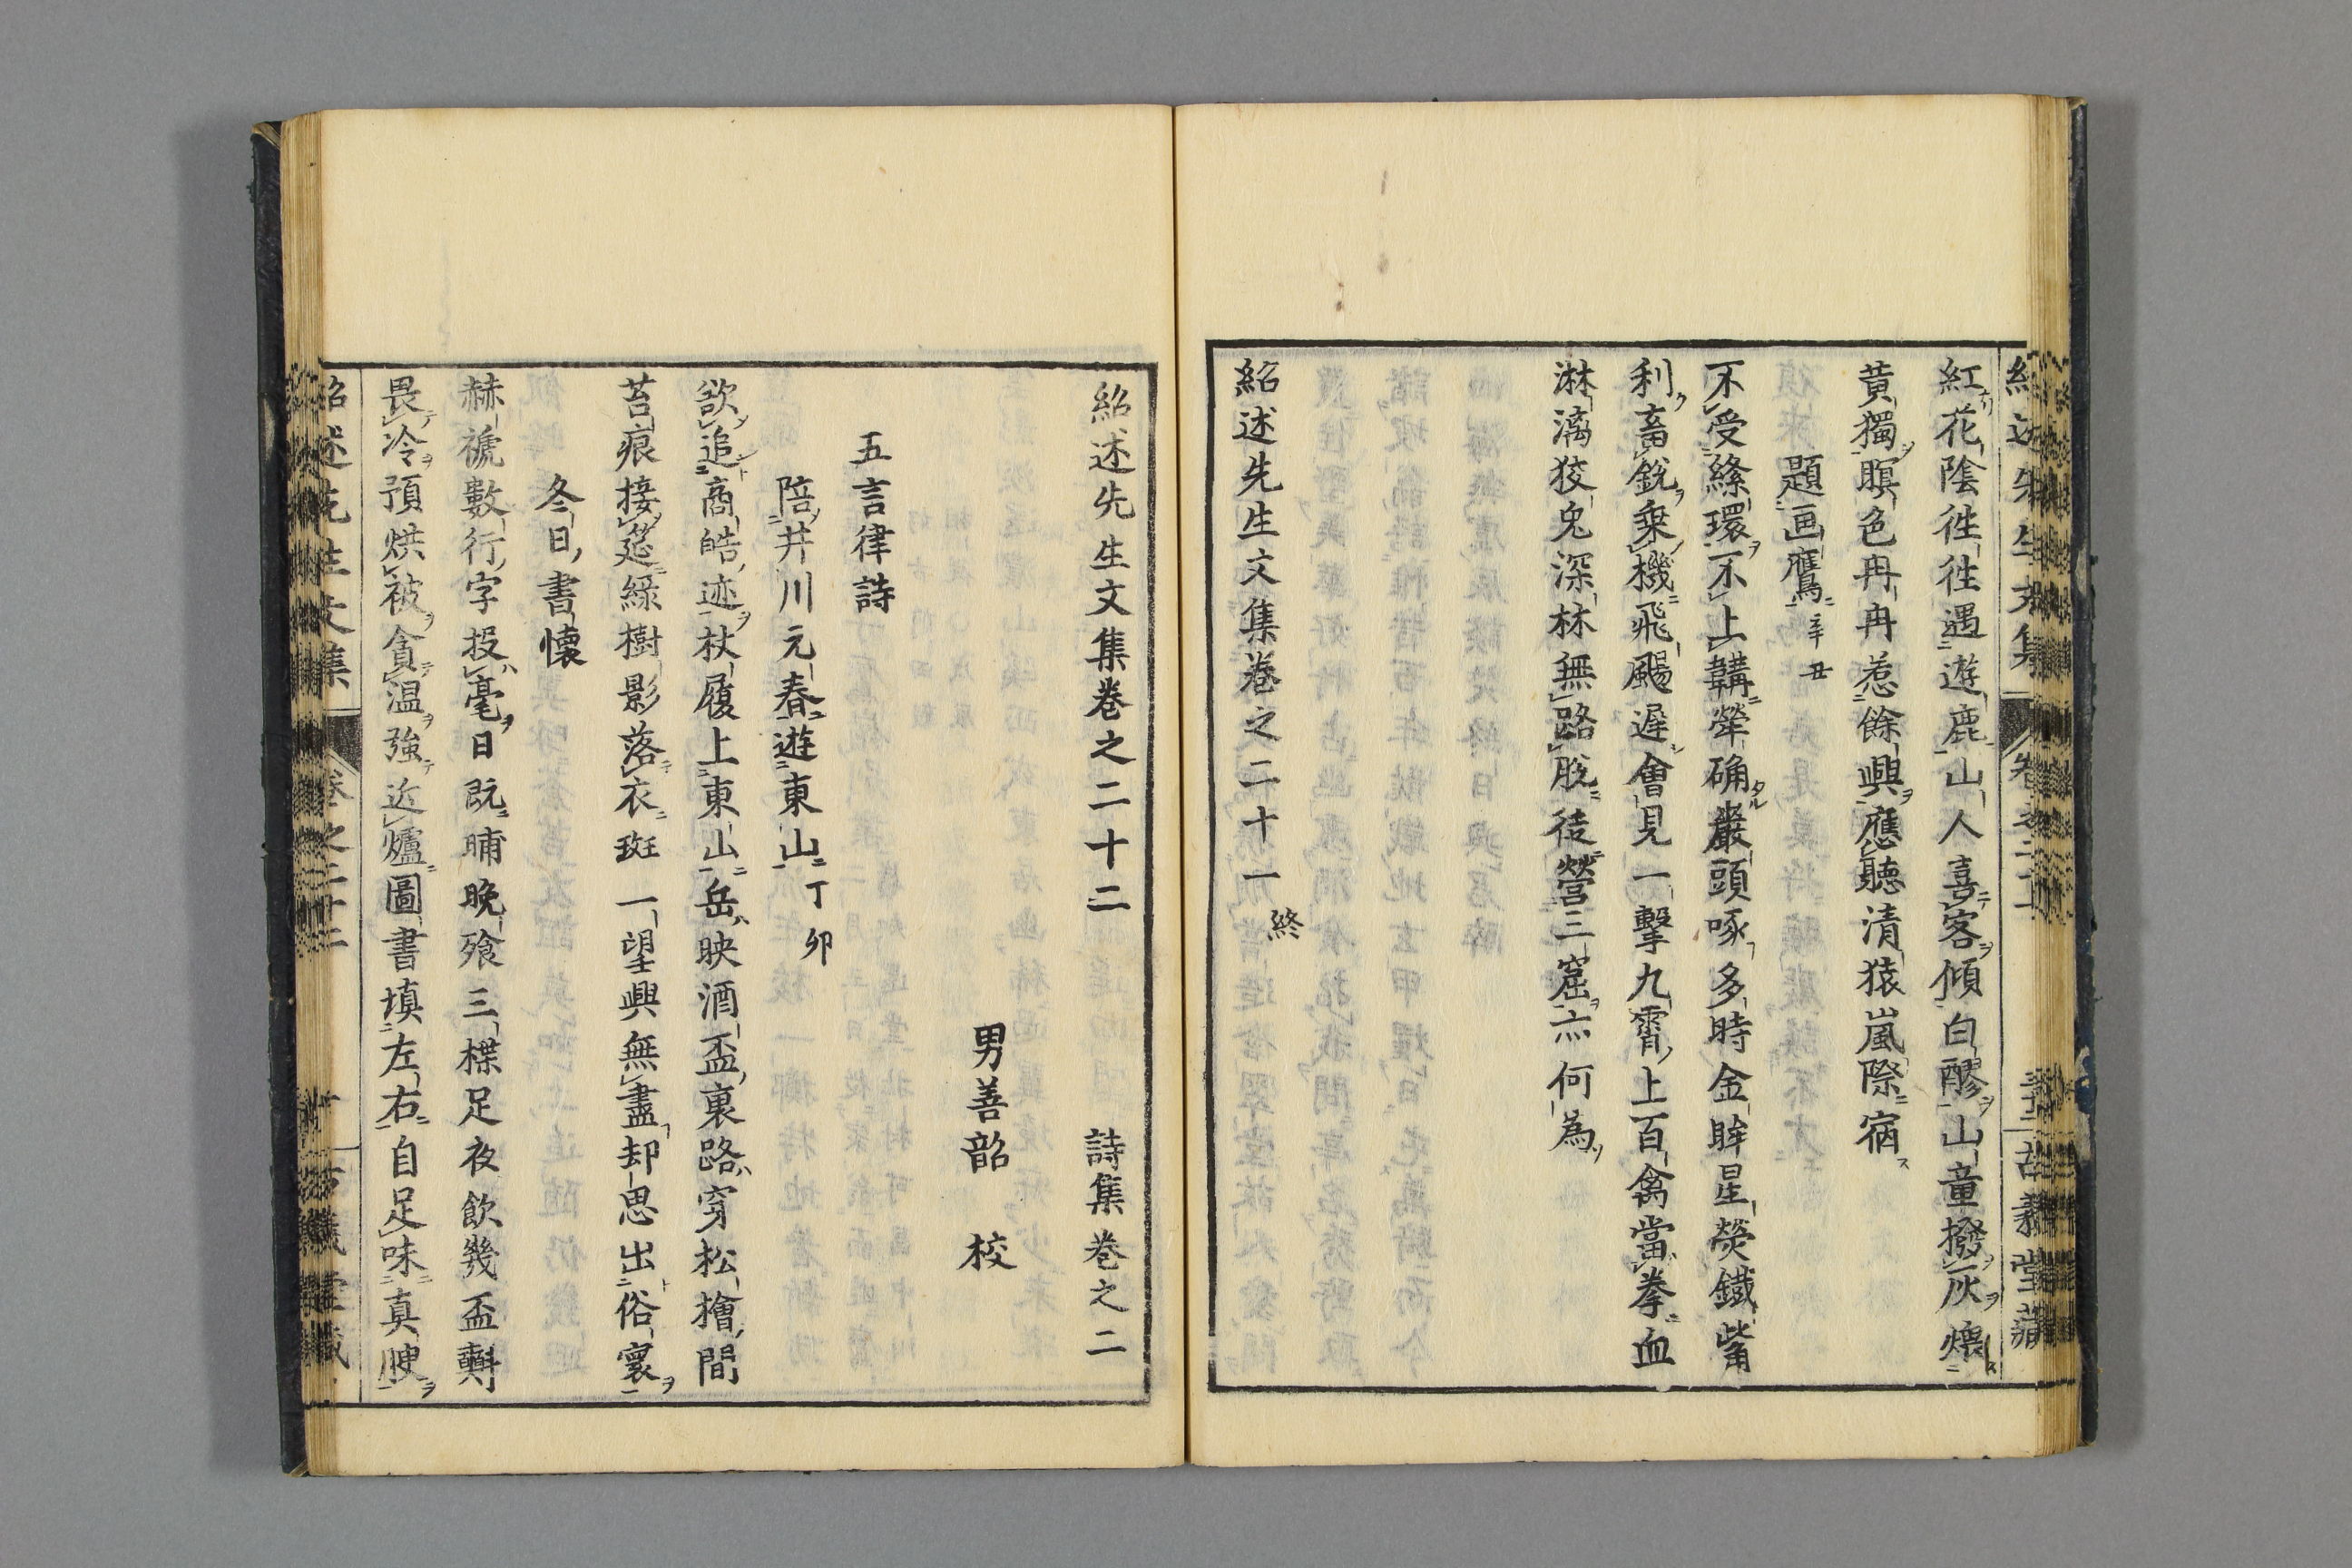 紅花陰徃徃遇遊鹿山人喜客傾白醪山童撥灰煨
黃獨暝色冉冉惹餘興應聽清猿嵐際宿
題画鷹辛丑
不受絛環不上韝犖确巖頭啄多時金眸星熒鐵觜
利畜銳乗機飛颺遲會見一擊九霄上百禽當拳血
淋漓狡兔深林無路脫徒營三窟亦何為
紹述先生文集巻之二十一終
紹述先生文集巻之二十二 詩集巻之二
男善韶 校
五言律詩
陪井川元春遊東山丁卯
欲追商皓迹杖履上東山岳映酒盃裏路穿松檜間
苔痕接筵綠樹影落衣斑一望興無盡却思出俗寰
冬日書懐
赫蹏數行字投毫日既晡晩飱三楪足夜飲幾盃𣂏
畏冷預烘被貪温強近爐圖書填左右自足味真腴
紹述先生文集 巻之二十二